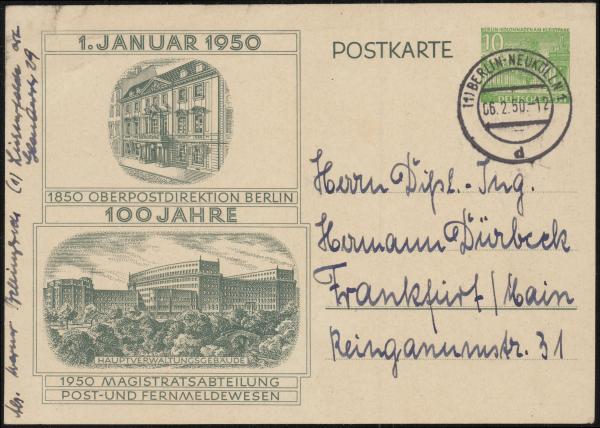 1. JANUAR 1950
1850 OBERPOSTDIREKTION BERLIN
100 JAHRE
HAUPTVERWALTUNGSGEBÄUDE
1950 MAGISTRATSABTEILUNG
POST-UND FERNMELDEWESEN
POSTKARTE
BERLIN·KOLONNADEN AM KLEISTPARK
10
(1) BERLIN-NEUKÖLLN 1
06.2.50.-12
d
Herrn Dipl.-Ing.
Hermann Dürbeck
Frankfurt/Main
Reinganumstr. 31
Abs. Werner